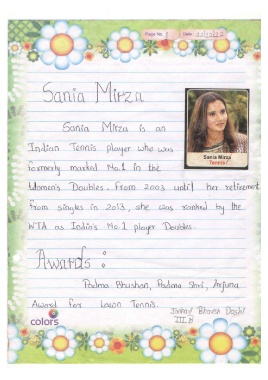 Page No. 1 Date:
Sania Mirza
Sania Mirza is an
Indian Tennis player who was
formerly marked No.1 in the
Women's Doubles. From 2003 until her retirement
from singles in 2013, she was ranked by the
WTA as India's No.1 player Doubles.
Sania Mirza
Tennis
Awards :
Padma Bhushan, Padma Shri, Arjuna
Award for Lawn Tennis.
Bhavesh Doshi
III B
colors